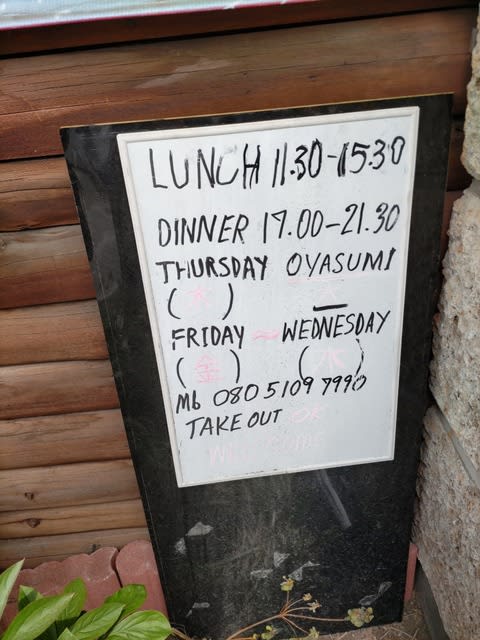 LUNCH 11.30-15.30
DINNER 17.00-21.30
THURSDAY OYASUMI
(木)
FRIDAY ~ WEDNESDAY
(金) (水)
Mb 080 5109 7990
TAKE OUT OK
WELCOME